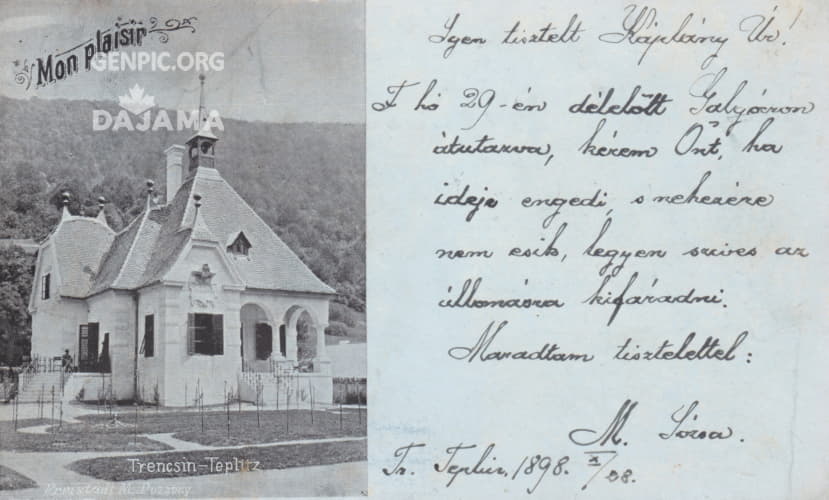 Mon plaisir
GENPIC.ORG
DAJAMA
Trencsin-Teplitz
Igen tisztelt Káplány Úr!
F hó 29-én délelőtt Galgóczon
átutazva, kérem Önt, ha
ideje engedi, s nehezére
nem esik, legyen szives az
állomásra kifáradni.
Maradtam tisztelettel:
M. Józsa.
Tr. Teplic, 1898. X/28.